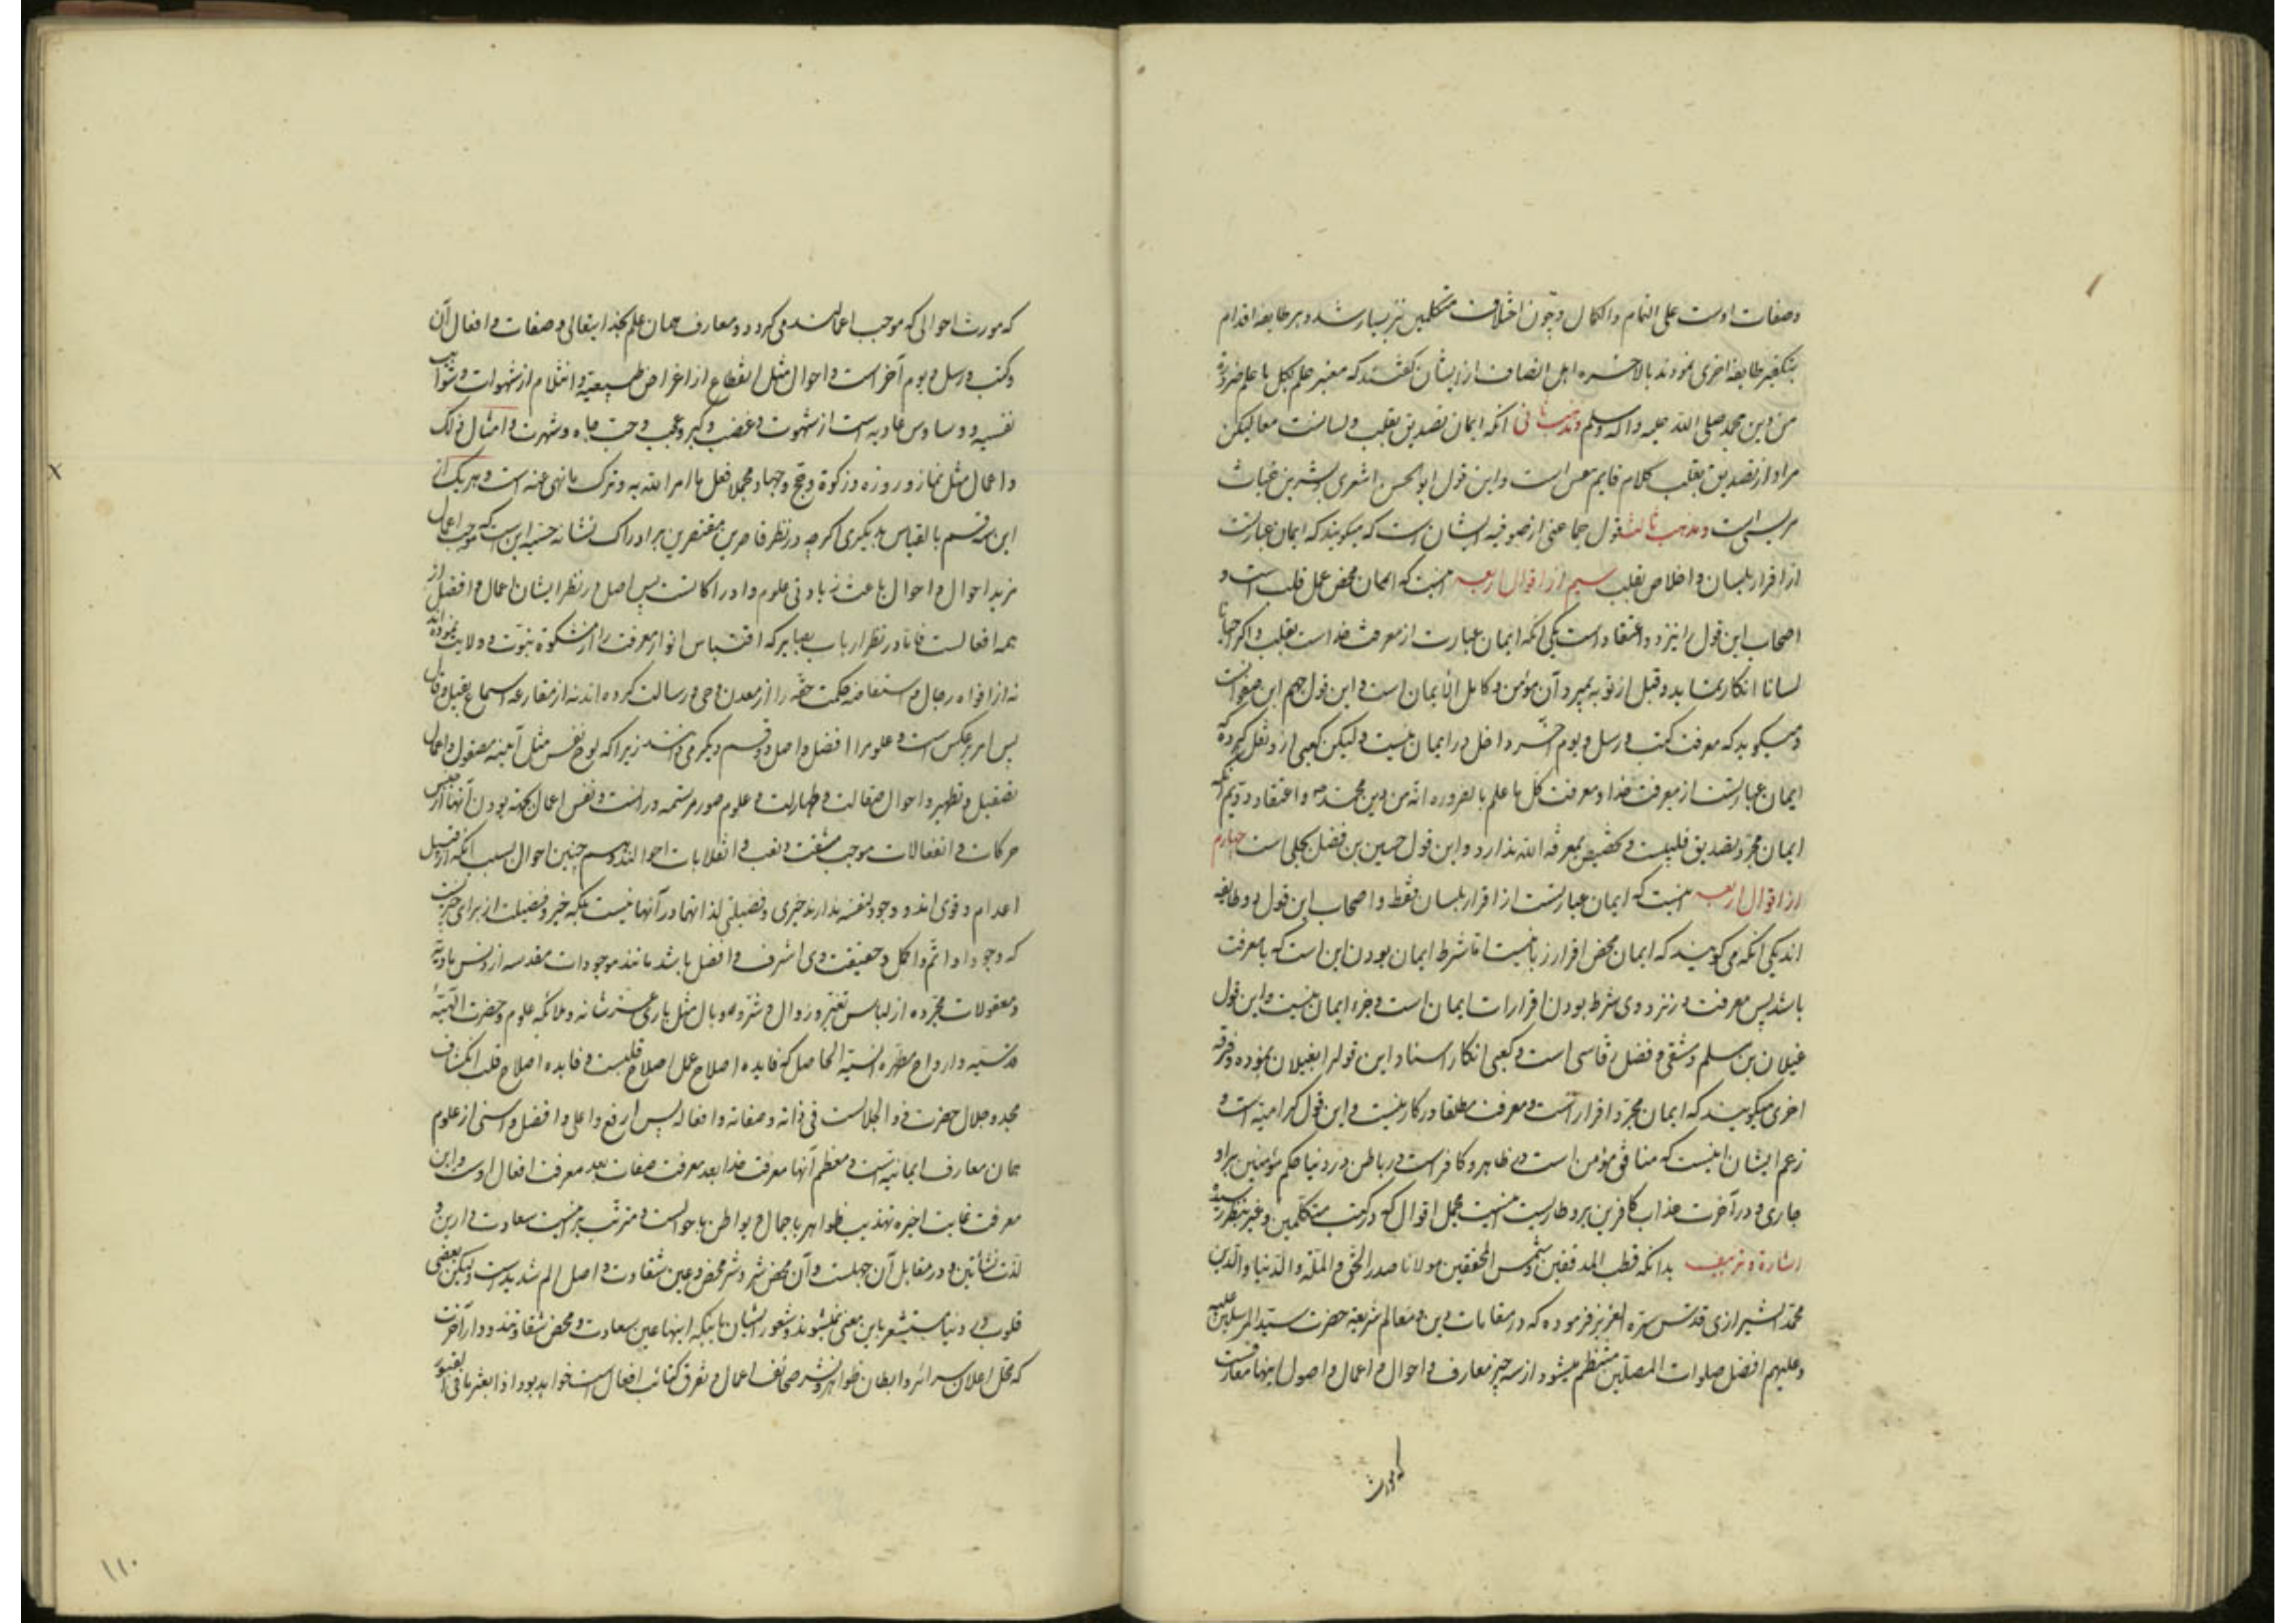 وصفات اوست علی التمام والکمال و چون اختلاف متکلمین نیز بسیار شد و هر طایفه اقدام
بتکفیر طایفه اخری نمودند بالاخره اهل انصاف از ایشان گفتند که معتبر علم بکل ما علم ضرورة
من دین محمد صلی الله علیه وآله وسلم ومذهب ثانی آنکه ایمان تصدیق بقلب ولسانست معا لیکن
مراد از تصدیق بقلب کلام قایم بنفس است واین قول ابوالحسن اشعری وبشر بن غیاث
مریسی است ومذهب ثالث قول جماعتی از صوفیه ایشان است که میگویند که ایمان عبارتست
از اقرار بلسان واخلاص بقلب سیم از اقوال اربعه اینست که ایمان محض عمل قلب است و
اصحاب این قول را نیز دو اعتقاد است یکی آنکه ایمان عبارت از معرفت خداست بقلب واگر احیانا
لسانا انکار نماید وقبل از توبه بمیرد آن مؤمن و کامل الایمان است واین قول جهم ابن صفوانست
ومیگوید که معرفت کتب ورسل ویوم آخر داخل در ایمان نیست ولیکن کعبی از او نقل کرده که
ایمان عبارتست از معرفت خدا ومعرفت کل ما علم بالضروره انه من دین محمد ص واعتقاد دویم آنکه
ایمان مجرد تصدیق قلبیست وتخصیص بمعرفة الله ندارد واین قول حسین بن فضل بجلی است چهارم
از اقوال اربعه اینست که ایمان عبارتست از اقرار بلسان فقط واصحاب این قول دو طایفه
اند یکی آنکه می گویند که ایمان محض اقرار زبانیست اما شرط ایمان بودن این است که با معرفت
باشد پس معرفت در نزد وی شرط بودن اقرارات ایمان است وجزء ایمان نیست واین قول
غیلان بن مسلم دمشقی وفضل رقاسی است وکعبی انکار اسناد این قول را بغیلان نموده وفرقه
اخری میگویند که ایمان مجرد اقرار است ومعرفت مطلقا در کار نیست واین قول کرامیه است و
زعم ایشان اینست که منافق مؤمن است در ظاهر وکافر است در باطن ودر دنیا حکم مؤمنین بر او
جاری ودر آخرت عذاب کافرین بر او طاریست اینست مجمل اقوال که در کتب متکلمین وغیر بنظر رسیده
اشارة وتزییف بدانکه قطب المدققین وشمس المحققین مولانا صدر الحق والملة والدنیا والدین
محمد الشیرازی قدس سره العزیز فرموده که در مقامات دین ومعالم شریعة حضرت سید المرسلین علیه
وعلیهم افضل صلوات المصلین منتظم میشود از سه چیز معارف و احوال و اعمال واصول اینها معارفست
که مورث
که مورث احوالی که موجب اعمالند می گردد ومعارف همان علم بخدایتعالی وصفات وافعال آن
وکتب ورسل ویوم آخر است واحوال مثل انقطاع از اغراض طبیعیه وانثلام از شهوات وشوایب
نفسیه و وساوس عادیه است از شهوت وغضب وکبر وعجب وحب جاه وشهرت وامثال ذلک
واعمال مثل نماز وروزه وزکوة وحج وجهاد ومجملا فعل ما امر الله به وترک ما نهی عنه است وهر یک از
این سه قسم بالقیاس بدیگری اگرچه در نظر قاصرین مقتصرین بر ادراک نشانه حسیه این است که موجب اعمال
مزید احوال واحوال باعث زیادتی علوم وادراکاتست پس اصل در نظر ایشان اعمال وافضل از
همه افعالست فاما در نظر ارباب بصایر که اقتباس انوار معرفت را از مشکوة نبوت وولایت نموده‌اند
نه از افواه رجال واستفاضه حکمت حقه را از معدن وحی ورسالت کرده اند نه از مقارعه اسماع بقیل وقال
پس امر بر عکس است وعلوم را افضل واصل دو قسم دیگر می دانند زیرا که لوح نفس مثل آینه مصقول واعمال
تصقیل وتطهیر واحوال صقالت وطهارت وعلوم صور مرتسمه در اوست ونفس اعمال بجهة بودن آنها از جنس
حرکات وانفعالات موجب مشقت وتعب وانقلابات احوالند وهم چنین احوال بسبب آنکه از قبیل
اعدام وقوی اند ووجود لنفسه ندارند خیری وفضیلتی لذاتهما در آنها نیست بلکه خیر وفضیلت از برای چیزیست
که وجود او اتم واکمل وحقیقت وی اشرف وافضل باشد مانند موجودات مقدسه از دنس مادیه
ومعقولات مجرده از لباس تغیر وزوال وشر ووبال مثل باری عز شانه وملائکه علوم وحضرت الهیه
قدسیه وارواح مطهره انسیه الحاصل که فایده اصلاح عمل اصلاح قلبست وفایده اصلاح قلب انکشاف
مجد وجلال حضرت ذو الجلالست فی ذاته وصفاته وافعاله پس ارفع واعلی وافضل واسنی از علوم
همان معارف ایمانیه است ومعظم آنها معرفت خدا بعد معرفت صفات بعد معرفت افعال اوست واین
معرفت غایت اخیره تهذیب ظواهر باعمال وبواطن باحوالست ومترتب بر اینست سعادت دارین و
لذت نشأتین ودر مقابل آن جهلست وآن محض شر وشر محض وعین شقاوت واصل الم شدید است ولیکن بعضی
قلوب در دنیا مستشعر باین معنی نمیشوند وشعور ایشان باینکه اینها عین سعادت ومحض شقاوتند در دار آخرت
که محل اعلان سرائر وابطان ظواهر ونشر صحائف اعمال وتفرق کتائب افعال است خواهد بود اذا بعثر ما فی القبور
۱۱۰